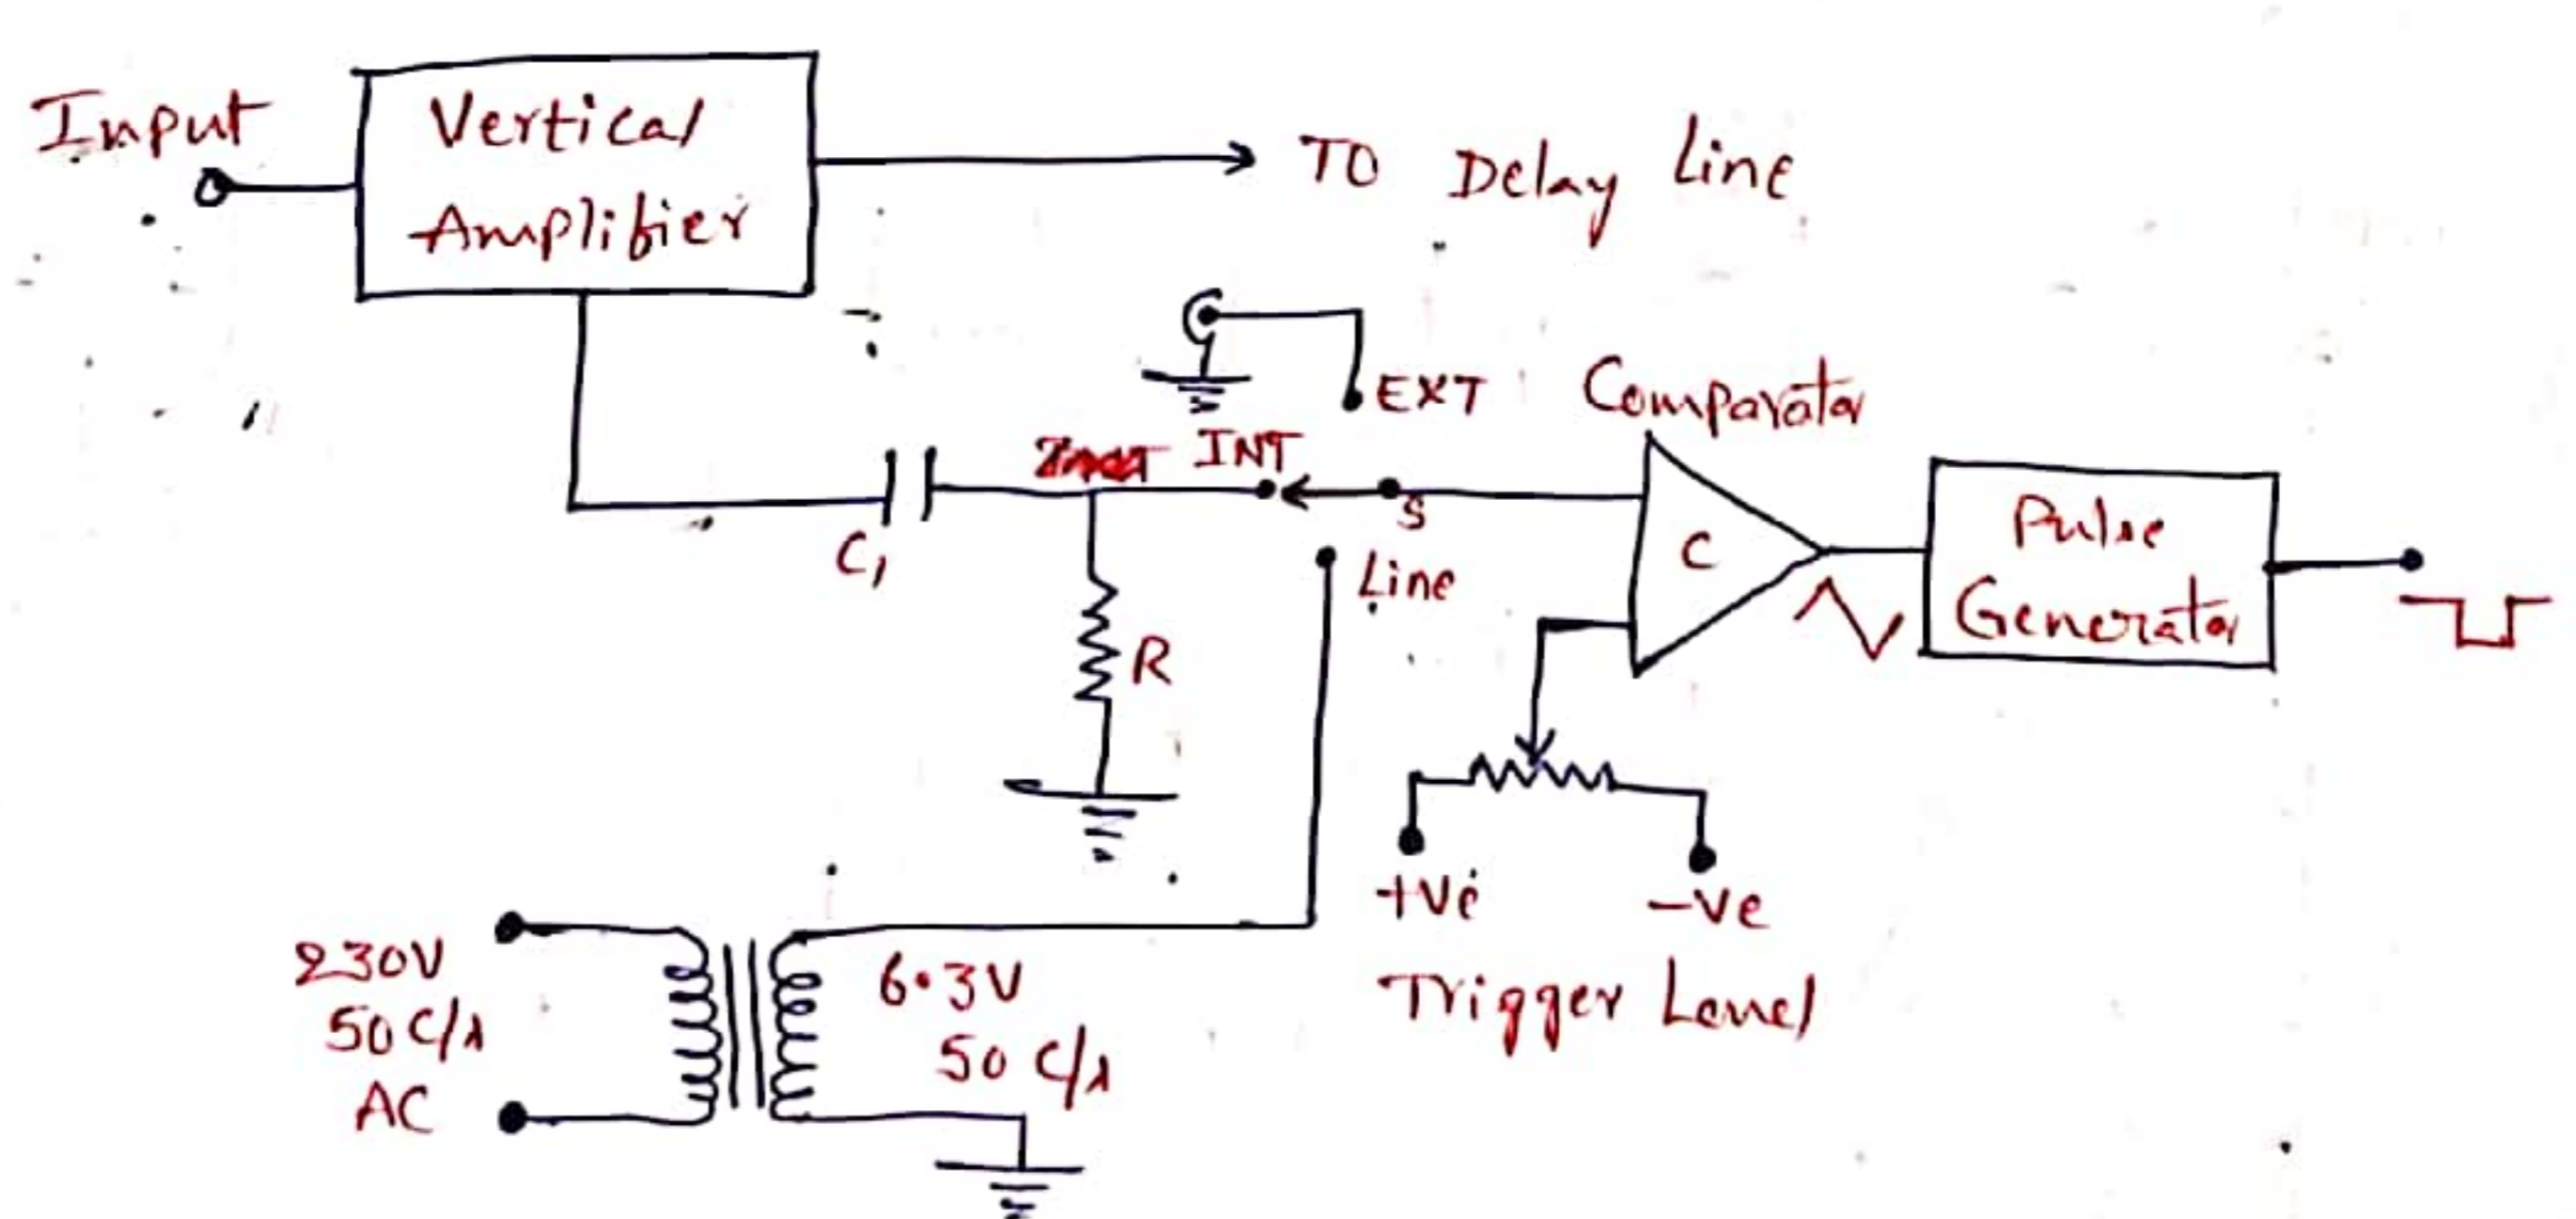 Input
Vertical
Amplifier
TO Delay Line
EXT
Comparator
INT
S
C₁
Line
C
Pulse
Generator
R
+Ve
-Ve
Trigger Level
230V
50 C/s
AC
6.3V
50 C/s